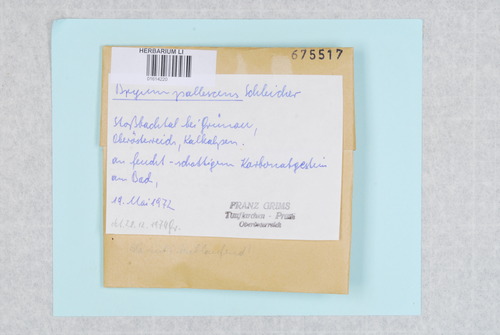 HERBARIUM LI
675517
Bryum pallescens Schleicher
bei Grünau,
Oberösterreich, Kalkalpen.
an feucht-schattigem Karbonatgestein
am Bach,
19. Mai 1972
FRANZ GRIMS
Taufkirchen - Pram
Oberösterreich